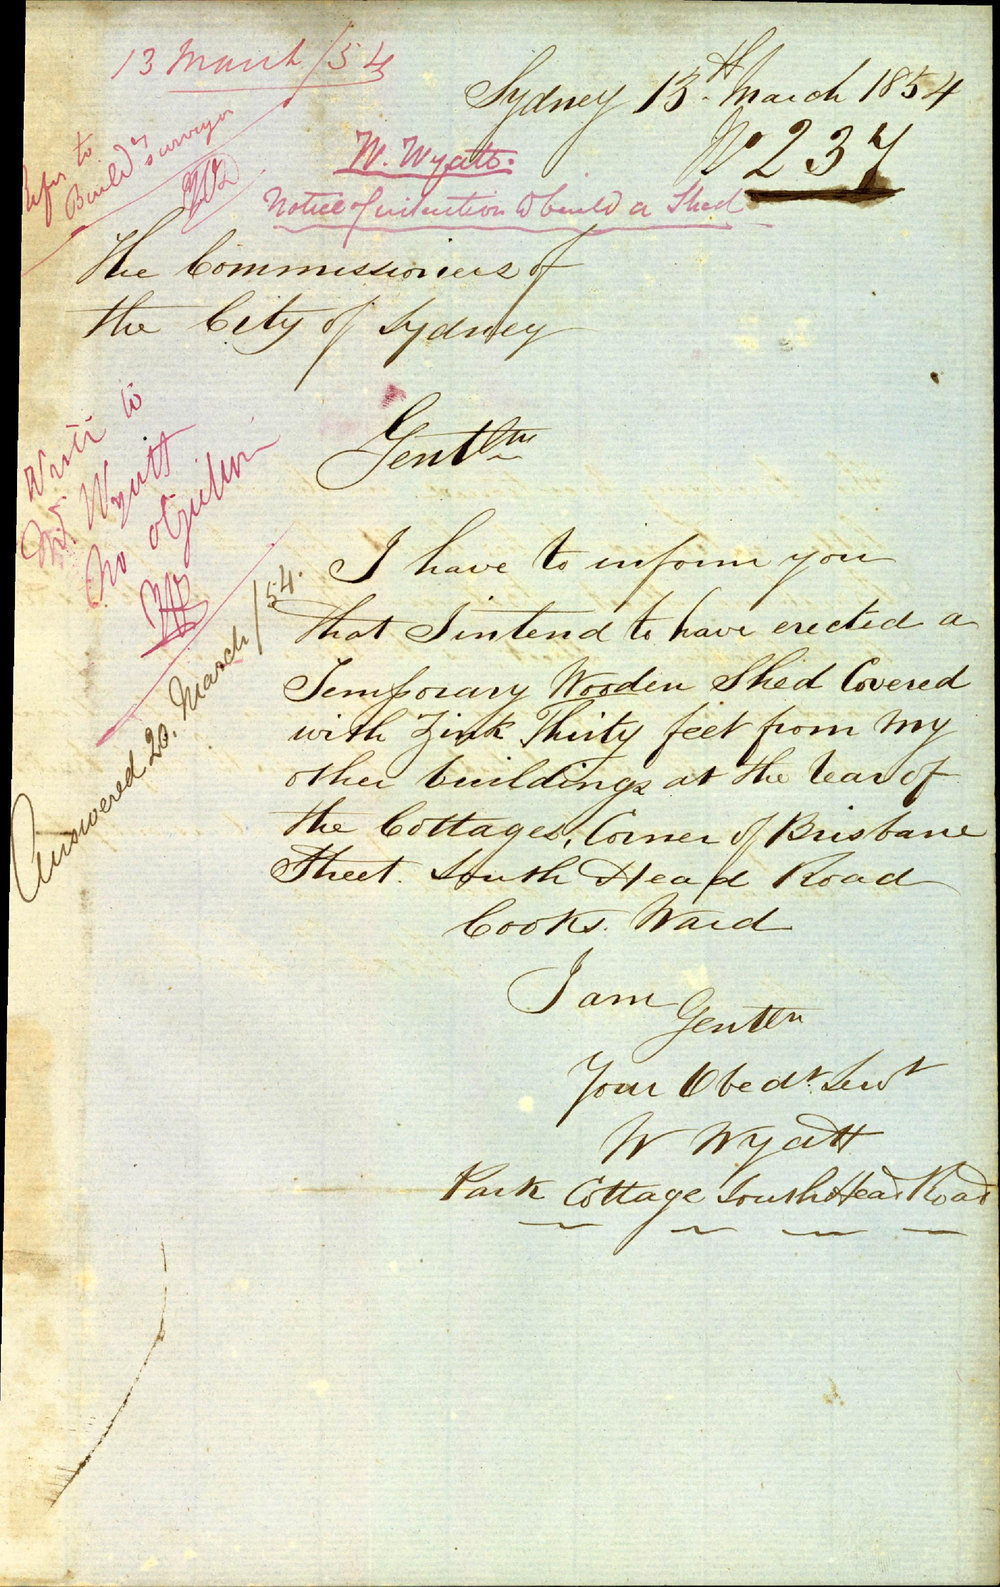 13 March/54
Sydney 13th March 1854
No 237
Refer to
Buildg Surveyor
W. Wyatt.
Notice of intention to build a Shed
The Commissioners of
the City of Sydney
Gentln
Write to
Mr. Wyatt
No objection
Answered 20. March/54.
I have to inform you
that I intend to have erected a
Temporary Wooden Shed Covered
with Zink Thirty feet from my
other buildings at the rear of
the Cottages, Corner of Brisbane
Street. South Head Road
Cooks. Ward
I am
Gentln
Your Obedt. Servt
W Wyatt
Park Cottage South Head Road